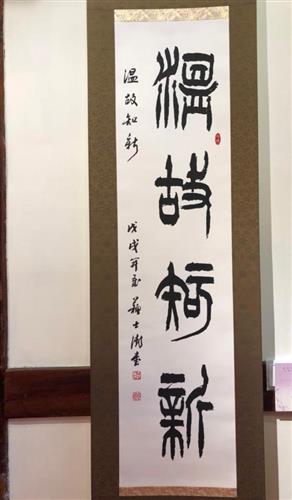 溫故知新
温故知新
戊戌年 蘇士澍書